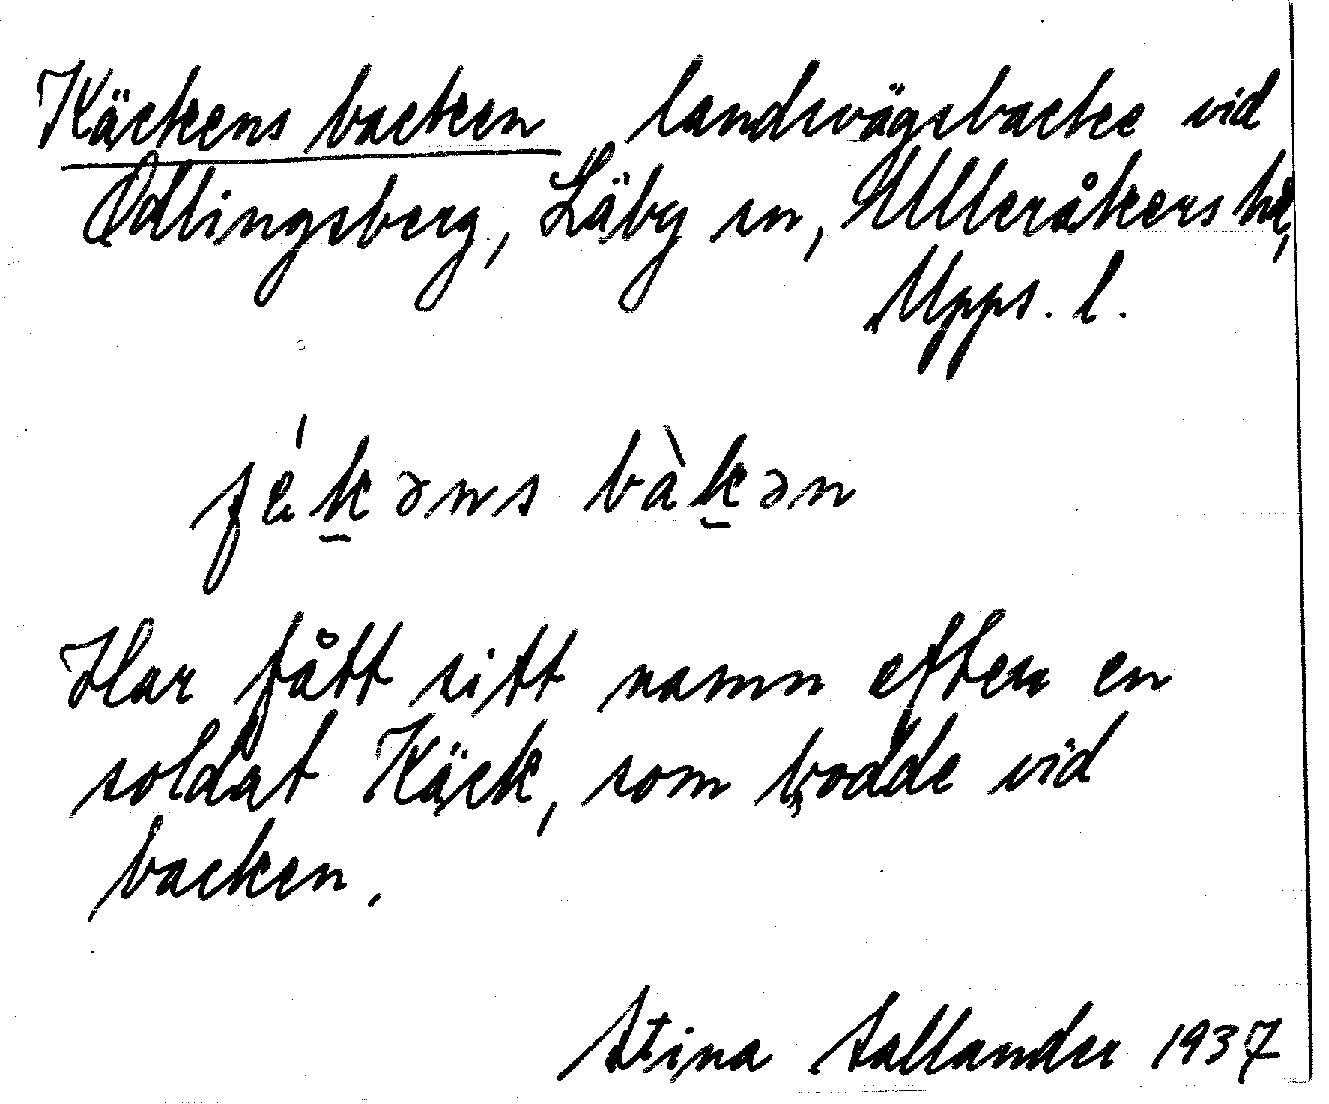 Käckens backen landsvägsbacke vid
Odlingsberg, Läby sn, Ulleråkers hd,
Upps. l.
ʃékəns bàkən
Har fått sitt namn efter en
soldat Käck, som bodde vid
backen.
Stina Sallander 1937